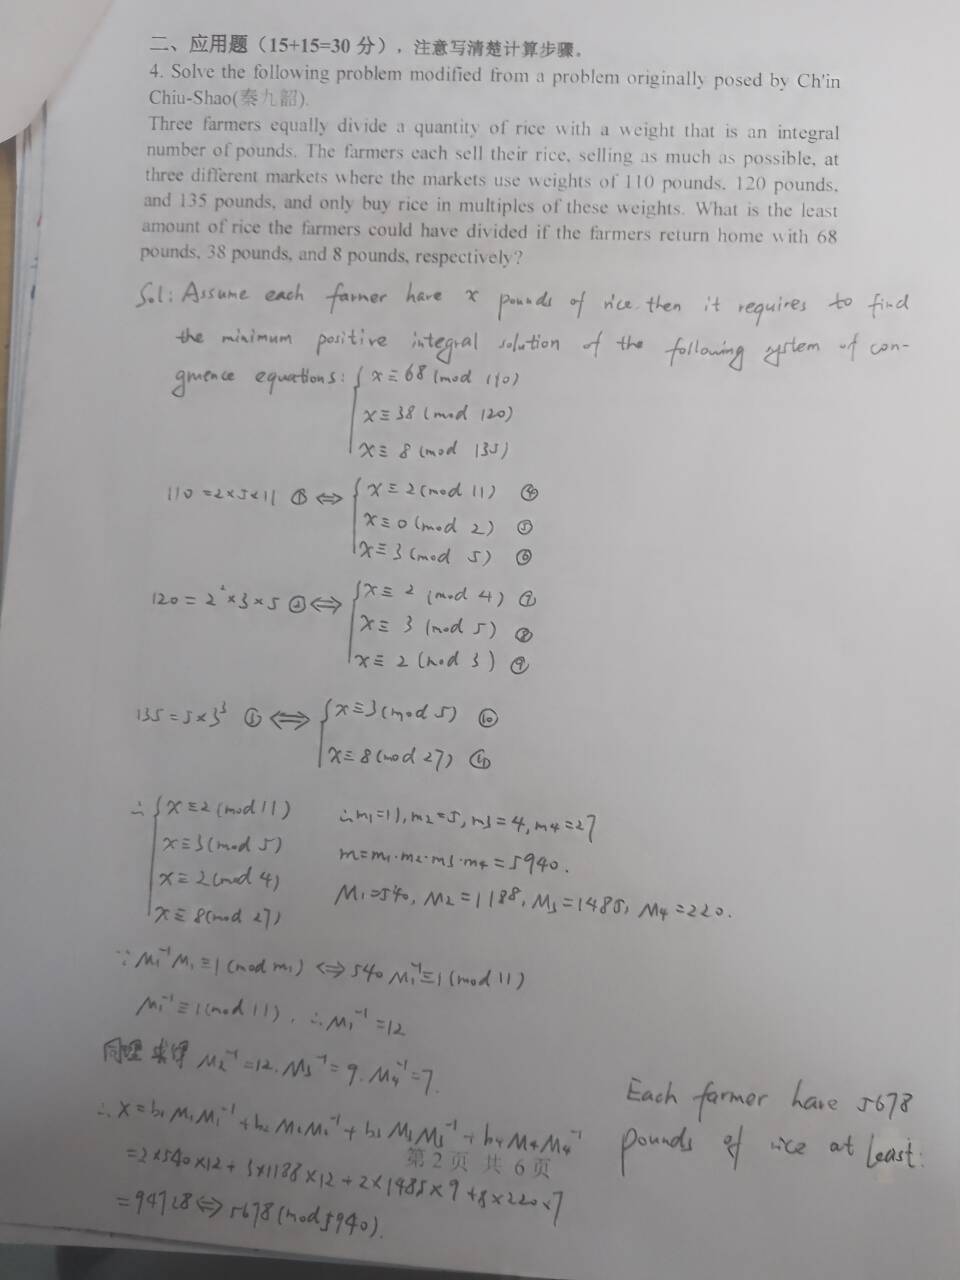 二、应用题（15+15=30 分），注意写清楚计算步骤。
4. Solve the following problem modified from a problem originally posed by Ch'in
Chiu-Shao(秦九韶).
Three farmers equally divide a quantity of rice with a weight that is an integral
number of pounds. The farmers each sell their rice, selling as much as possible, at
three different markets where the markets use weights of 110 pounds, 120 pounds,
and 135 pounds, and only buy rice in multiples of these weights. What is the least
amount of rice the farmers could have divided if the farmers return home with 68
pounds, 38 pounds, and 8 pounds, respectively?
Sol: Assume each farmer have x pounds of rice. then it requires to find
the minimum positive integral solution of the following system of con-
gruence equations: { x ≡ 68 (mod 110)
x ≡ 38 (mod 120)
x ≡ 8 (mod 135)
110 = 2×5×11 ⇔ { x ≡ 2 (mod 11) ④
x ≡ 0 (mod 2) ⑤
x ≡ 3 (mod 5) ⑥
120 = 2²×3×5 ② ⇔ { x ≡ 2 (mod 4) ⑦
x ≡ 3 (mod 5) ⑧
x ≡ 2 (mod 3) ⑨
135 = 5×3³ ⇔ { x ≡ 3 (mod 5) ⑩
x ≡ 8 (mod 27) ⑪
∴ { x ≡ 2 (mod 11) ∴ m₁=11, m₂=5, m₃=4, m₄=27
x ≡ 3 (mod 5) m=m₁·m₂·m₃·m₄=5940.
x ≡ 2 (mod 4)
x ≡ 8 (mod 27) M₁=540, M₂=1188, M₃=1485, M₄=220.
∵ M₁⁻¹M₁ ≡ 1 (mod m₁) ⇔ 540 M₁⁻¹ ≡ 1 (mod 11)
M₁⁻¹ ≡ 1 (mod 11). ∴ M₁⁻¹ = 12
同理求得 M₂⁻¹=12. M₃⁻¹=9. M₄⁻¹=7.
∴ x = b₁M₁M₁⁻¹ + b₂M₂M₂⁻¹ + b₃M₃M₃⁻¹ + b₄M₄M₄⁻¹
=2×540×12+3×1188×12+2×1485×9+8×220×7
=94728 ⇔ 5678 (mod 5940).
Each farmer have 5678
pounds of rice at least.
第 2 页 共 6 页